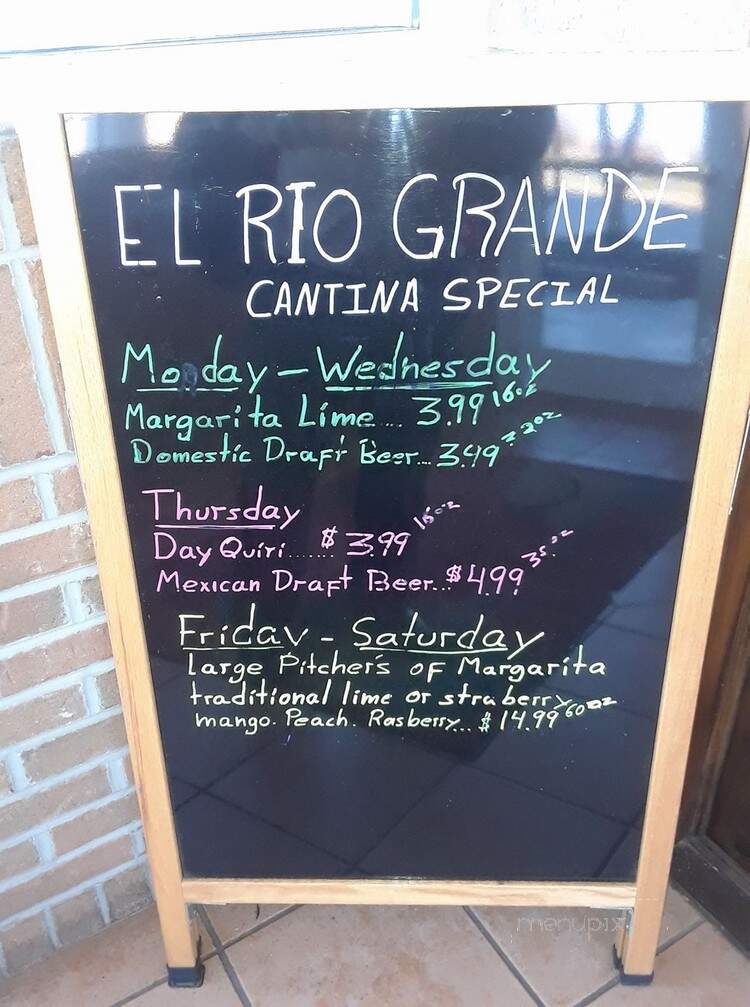 EL RIO GRANDE
CANTINA SPECIAL
Monday - Wednesday
Margarita Lime... 3.99 16oz
Domestic Draft Beer... 3.49 22oz
Thursday
Day Quiri....... $ 3.99 16oz
Mexican Draft Beer... $4.99 35oz
Friday - Saturday
Large Pitcher's of Margarita
traditional lime or straberry
mango. Peach. Rasberry... $14.99 60oz
menupix